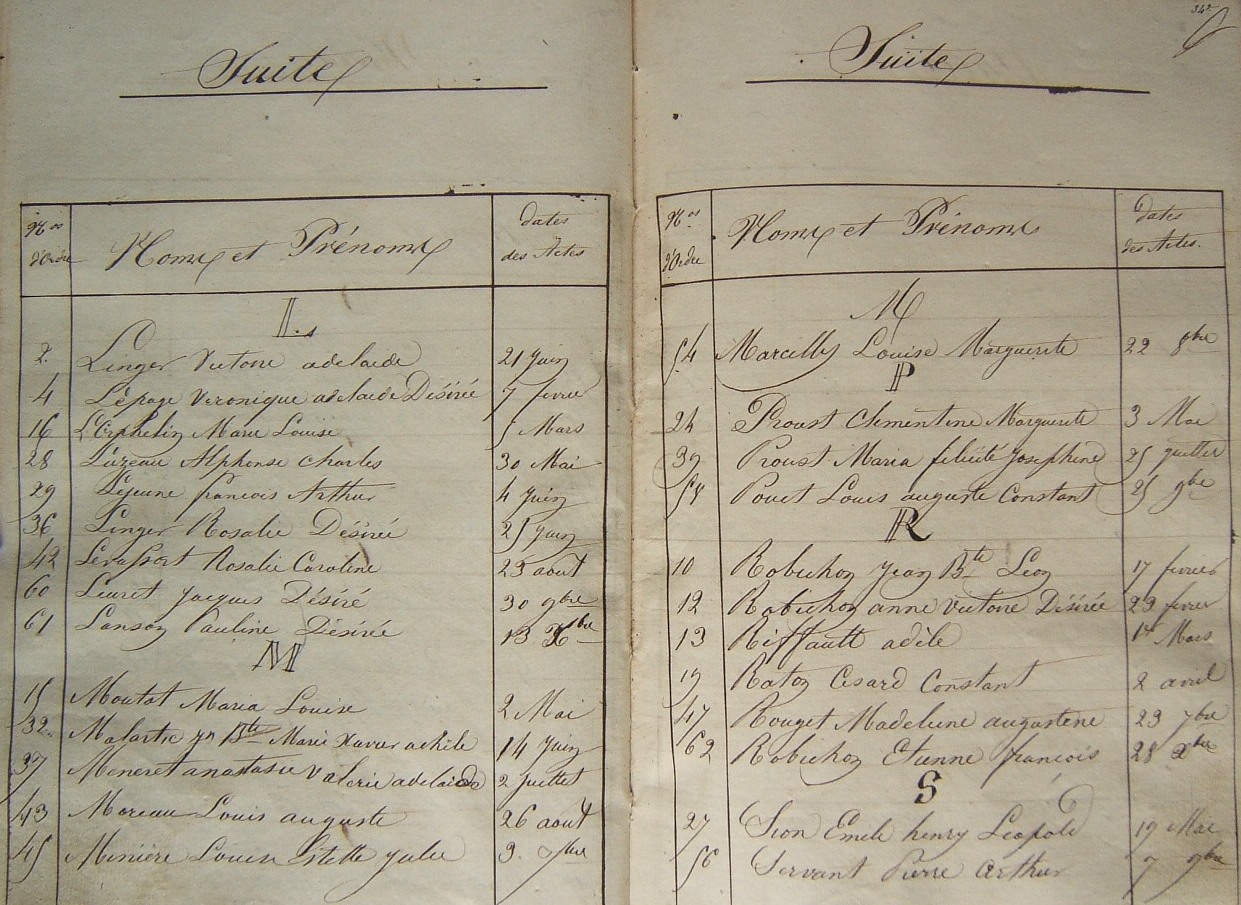 Suite
Nos d'Ordre Noms et Prénoms dates des Actes
L
2 Linger Victoire adelaide 21 Juin
4 Lépage Veronique adelaide Désirée 7 fevrier
16 L'Orphelin Marie Louise 5 Mars
28 Luzeau Alphonse Charles 30 Mai
29 Lejeune francois Arthur 4 Juin
36 Linger Rosalie Désirée 25 Juin
42 Levassort Rosalie Caroline 23 aout
60 Lieuret Jacques Désiré 30 9bre
61 Lanson Pauline Désirée 13 Xbre
M
15 Moutot Maria Louise 2 Mai
32 Malartre Jn Bte Marie Xavier achile 14 Juin
37 Meneret anastasie Valerie adelaide 2 Juillet
43 Moreau Louis auguste 26 aout
45 Miniere Louise Estelle Julie 3 7bre
342
Suite
Nos d'Ordre Noms et Prénoms dates des Actes
M
54 Marcilly Louise Marguerite 22 8bre
P
24 Proust Clementine Marguerite 3 Mai
39 Proust Maria felicité Josephine 25 Juillet
58 Pouet Louis auguste Constant 25 9bre
R
10 Robichon Jean Bte Léon 17 fevrier
12 Robichon anne Victoire Désirée 23 fevrier
13 Riffault adèle 1er Mars
19 Raton Cesard Constant 2 avril
47 Rouget Madeleine augustine 23 7bre
62 Robichon Etienne françois 28 Xbre
S
27 Sion Emile henry Léopold 19 Mai
56 Servant Pierre Arthur 7 9bre